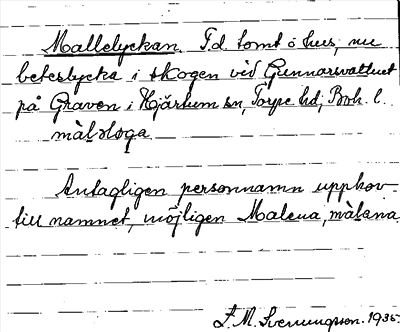 Mallelyckan. F.d. tomt o hus, nu
beteslycka i skogen vid Gunnarsvattnet
på Graven i Hjärtum sn, Torpe hd, Boh. l.
målaloga
Antagligen personnamn upphov
till namnet, möjligen Malena, målana.
F. M. Svenungsson. 1935.